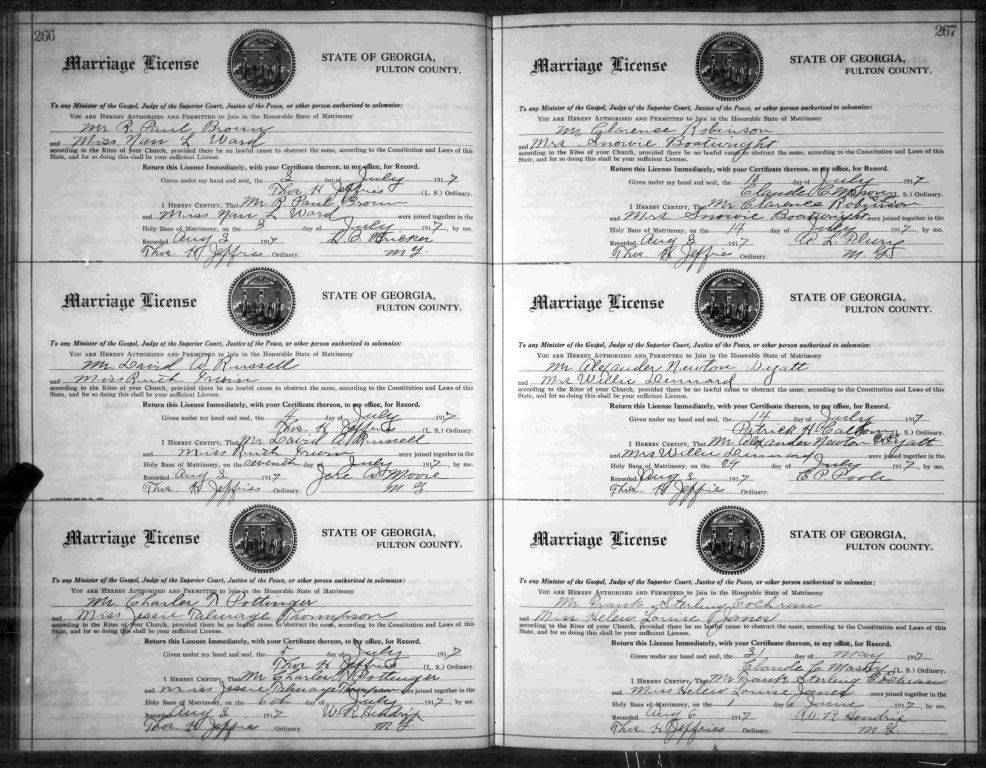 266
Marriage License
STATE OF GEORGIA,
FULTON COUNTY.
To any Minister of the Gospel, Judge of the Superior Court, Justice of the Peace, or other person authorized to solemnize:
YOU ARE HEREBY AUTHORIZED AND PERMITTED to Join in the Honorable State of Matrimony
Mr R. Paul Brown
and Miss Nan L Ward
according to the Rites of your Church, provided there be no lawful cause to obstruct the same, according to the Constitution and Laws of this
State, and for so doing this shall be your sufficient License.
Return this License Immediately, with your Certificate thereon, to my office, for Record.
Given under my hand and seal, the 3 day of July 1917
Thos H Jeffries (L. S.) Ordinary.
I HEREBY CERTIFY, That Mr R Paul Brown
and Miss Nan L Ward were joined together in the
Holy Bans of Matrimony, on the 3 day of July 1917, by me.
Recorded Aug 3 1917 Bricker
Thos. H Jeffries Ordinary. M G
Marriage License
STATE OF GEORGIA,
FULTON COUNTY.
To any Minister of the Gospel, Judge of the Superior Court, Justice of the Peace, or other person authorized to solemnize:
YOU ARE HEREBY AUTHORIZED AND PERMITTED to Join in the Honorable State of Matrimony
Mr David A Russell
and Miss Ruth
according to the Rites of your Church, provided there be no lawful cause to obstruct the same, according to the Constitution and Laws of this
State, and for so doing this shall be your sufficient License.
Return this License Immediately, with your Certificate thereon, to my office, for Record.
Given under my hand and seal, the 4 day of July 1917
Thos. H Jeffries (L. S.) Ordinary.
I HEREBY CERTIFY, That Mr David A Russell
and Miss Ruth were joined together in the
Holy Bans of Matrimony, on the seventh day of July 1917, by me.
Recorded Aug 3 1917 Jere A Moore
Thos H Jeffries Ordinary. M G
Marriage License
STATE OF GEORGIA,
FULTON COUNTY.
To any Minister of the Gospel, Judge of the Superior Court, Justice of the Peace, or other person authorized to solemnize:
YOU ARE HEREBY AUTHORIZED AND PERMITTED to Join in the Honorable State of Matrimony
Mr. Charles N Pottinger
and Miss Jessie Talmage Thompson
according to the Rites of your Church, provided there be no lawful cause to obstruct the same, according to the Constitution and Laws of this
State, and for so doing this shall be your sufficient License.
Return this License Immediately, with your Certificate thereon, to my office, for Record.
Given under my hand and seal, the 5 day of July 1917
Thos H Jeffries (L. S.) Ordinary.
I HEREBY CERTIFY, That Mr Charles N Pottinger
and Miss Jessie Talmage Thompson were joined together in the
Holy Bans of Matrimony, on the 6th day of July 1917, by me.
Recorded Aug 3 1917 W. R. Hendrix
Thos H Jeffries Ordinary. M G
267
Marriage License
STATE OF GEORGIA,
FULTON COUNTY.
To any Minister of the Gospel, Judge of the Superior Court, Justice of the Peace, or other person authorized to solemnize:
YOU ARE HEREBY AUTHORIZED AND PERMITTED to Join in the Honorable State of Matrimony
Mr Clarence Robinson
and Mrs Snowie Boatwright
according to the Rites of your Church, provided there be no lawful cause to obstruct the same, according to the Constitution and Laws of this
State, and for so doing this shall be your sufficient License.
Return this License Immediately, with your Certificate thereon, to my office, for Record.
Given under my hand and seal, the day of July 1917
Claude C Mason (L. S.) Ordinary.
I HEREBY CERTIFY, That Mr Clarence Robinson
and Mrs Snowie Boatwright were joined together in the
Holy Bans of Matrimony, on the 14 day of July 1917, by me.
Recorded Aug 3 1917 A. L.
Thos. H Jeffries Ordinary. M. G
Marriage License
STATE OF GEORGIA,
FULTON COUNTY.
To any Minister of the Gospel, Judge of the Superior Court, Justice of the Peace, or other person authorized to solemnize:
YOU ARE HEREBY AUTHORIZED AND PERMITTED to Join in the Honorable State of Matrimony
Mr Alexander Newton Wyatt
and Mrs Willie Dennard
according to the Rites of your Church, provided there be no lawful cause to obstruct the same, according to the Constitution and Laws of this
State, and for so doing this shall be your sufficient License.
Return this License Immediately, with your Certificate thereon, to my office, for Record.
Given under my hand and seal, the 14 day of July 1917
Patrick H Calhoun (L. S.) Ordinary.
I HEREBY CERTIFY, That Mr Alexander Newton Wyatt
and Mrs Willie Dennard were joined together in the
Holy Bans of Matrimony, on the 29 day of July 1917, by me.
Recorded Aug 3 1917 E. P. Poole
Thos. H Jeffries Ordinary.
Marriage License
STATE OF GEORGIA,
FULTON COUNTY.
To any Minister of the Gospel, Judge of the Superior Court, Justice of the Peace, or other person authorized to solemnize:
YOU ARE HEREBY AUTHORIZED AND PERMITTED to Join in the Honorable State of Matrimony
Mr Frank Sterling Cochran
and Miss Helen Louise Jones
according to the Rites of your Church, provided there be no lawful cause to obstruct the same, according to the Constitution and Laws of this
State, and for so doing this shall be your sufficient License.
Return this License Immediately, with your Certificate thereon, to my office, for Record.
Given under my hand and seal, the 31 day of May 1917
Claude C. Mason (L. S.) Ordinary.
I HEREBY CERTIFY, That Mr Frank Sterling Cochran
and Miss Helen Louise Jones were joined together in the
Holy Bans of Matrimony, on the 1 day of June 1917, by me.
Recorded Aug 6 1917 W. R. Hendrix
Thos. H Jeffries Ordinary. M. G.